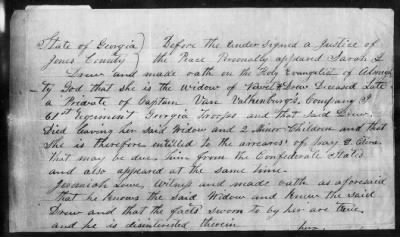 State of Georgia) Before the undersigned a Justice of
Jones County) the Peace Personally appeared Sarah
Drew and made oath on the Holy Evangelist of Almigh
ty God that she is the widow of Drew Deceased late
a Private of Captain Van Valkenburg's Company
61st Regiment Georgia Troops and that said Drew
Died leaving her said Widow and 2 Minor Children and that
She is therefore entitled to the arreares of pay &
that may be due him from the Confederate States
and also appeared at the same time
Jeremiah Lowe, Witness and made oath as aforesaid
that he knows the said Widow and knew the said
Drew and that the facts sworn to by her are true
and he is disinterested therein
her